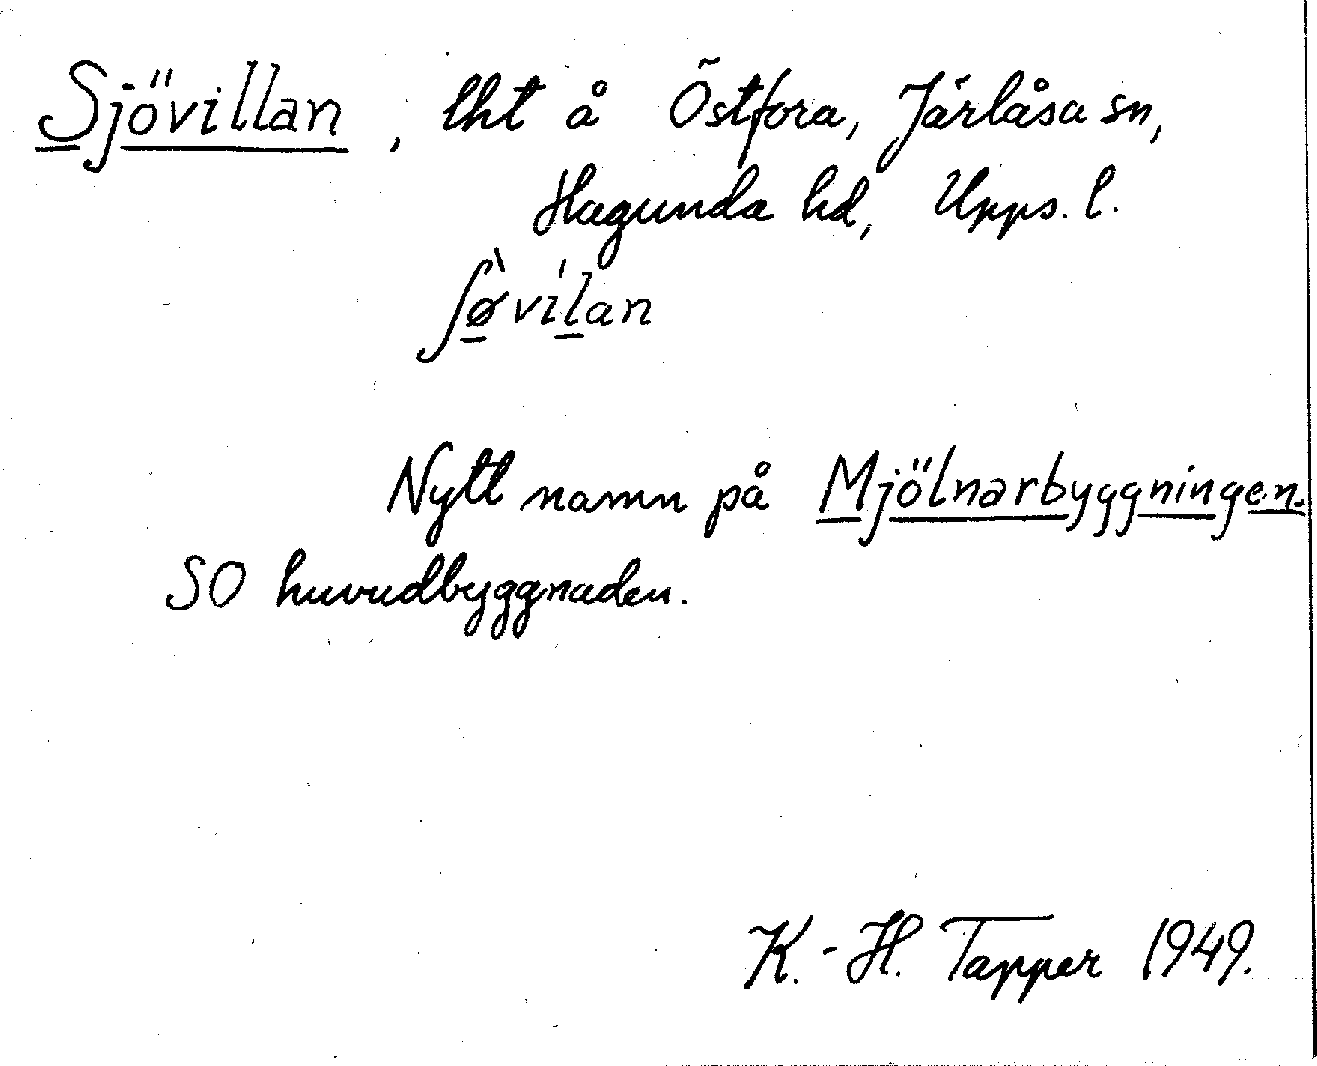 Sjövillan, lht å Östfora, Järlåsa sn,
Hagunda hd, Upps. l.
ʃø̀vílan
Nytt namn på Mjölnarbyggningen.
SO huvudbyggnaden.
K.-H. Tapper 1949.